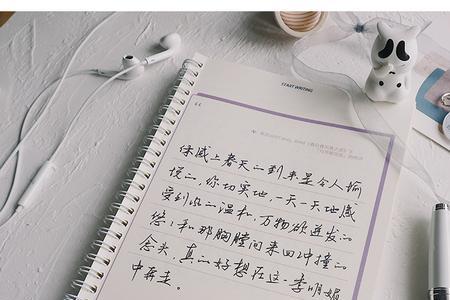 START WRITING
体感上春天的到来是令人愉
悦的,你切实地,一天一天地感
受到的温和,万物欲迸发的
和那胸膛间来回冲撞的
念头,真的好想在这一季明媚
中再走。